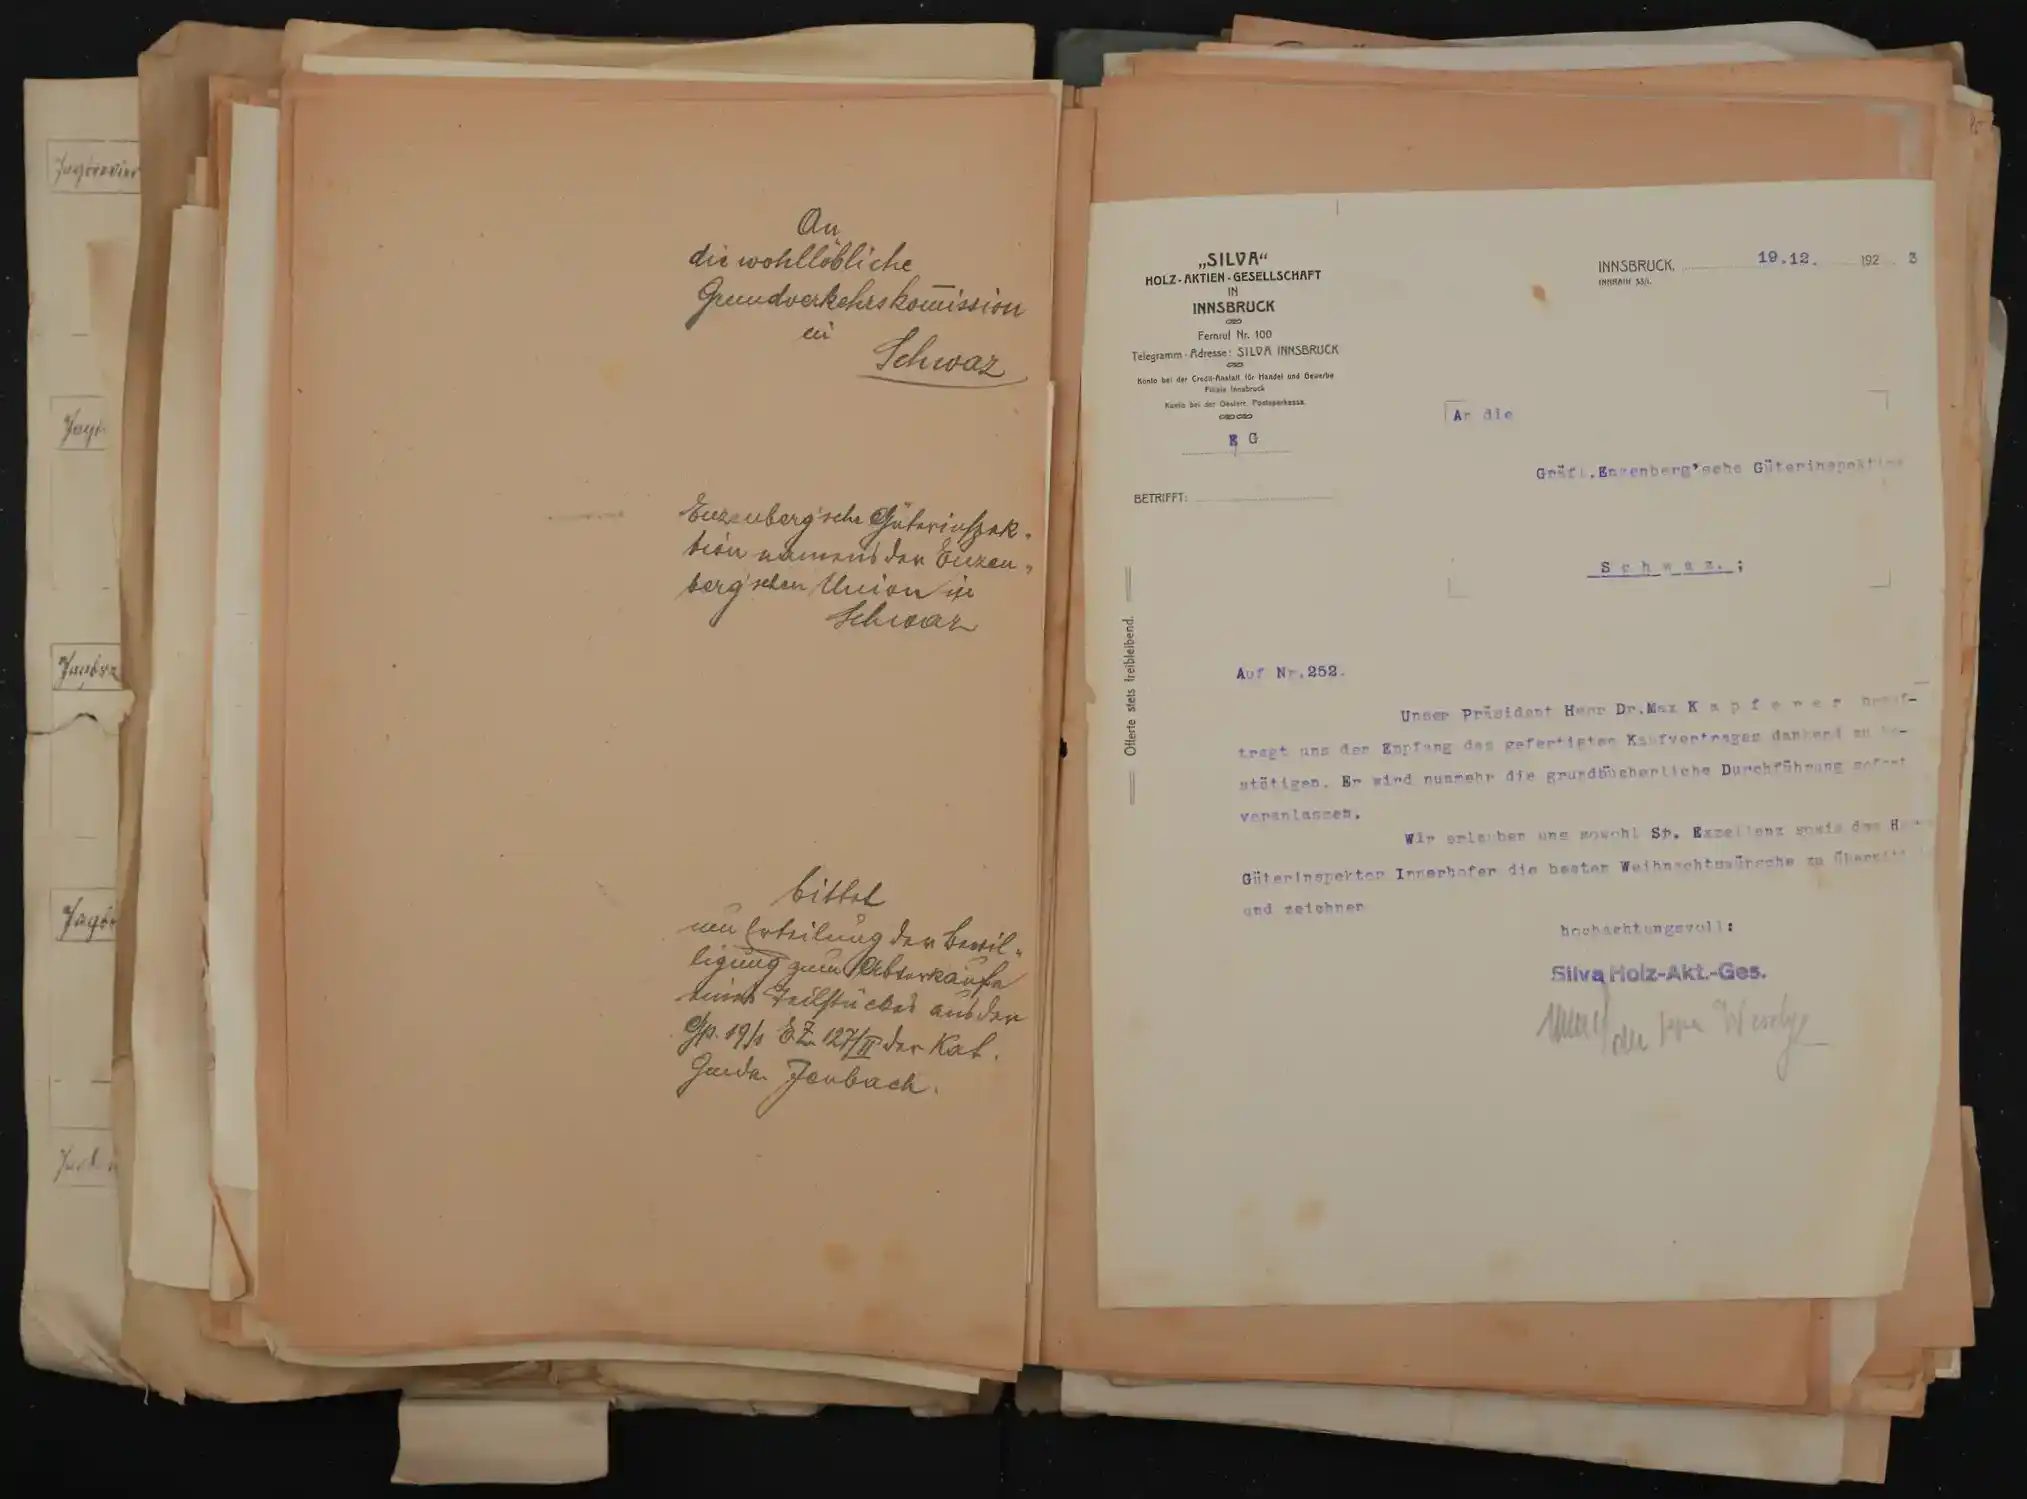 Jagdrevier
An
die wohllöbliche
Grundverkehrskom̄ission
in
Schwaz
Enzenberg'sche Güterinspek-
tion namens der Enzen-
berg'schen Union in
Schwaz
bittet
um Erteilung der Bewil-
ligung zum Abverkaufe
eines Teilstückes aus der
Gp. 19/1 E.Z. 127/II der Kat.
Gmde. Jenbach.
„SILVA“
HOLZ-AKTIEN-GESELLSCHAFT
IN
INNSBRUCK
Fernruf Nr. 100
Telegramm-Adresse: SILVA INNSBRUCK
Konto bei der Credit-Anstalt für Handel und Gewerbe
Filiale Innsbruck
Konto bei der Oesterr. Postsparkassa.
E G
BETRIFFT:
Offerte stets freibleibend.
INNSBRUCK, 19.12. 192 3
INNRAIN 53/I.
An die
Gräfl.Enzenberg'sche Güterinspektion
Schwaz.;
Auf Nr.252.
Unser Präsident Herr Dr.Max K a p f e r e r beauf-
tragt uns den Empfang des gefertigten Kaufvertrages dankend zu be-
stätigen. Er wird nunmehr die grundbücherliche Durchführung sofort
veranlassen.
Wir erlauben uns sowohl Sr. Exzellenz sowie dem Herrn
Güterinspektor Innerhofer die besten Weihnachtswünsche zu
und zeichnen
hochachtungsvoll:
Silva Holz-Akt.-Ges.